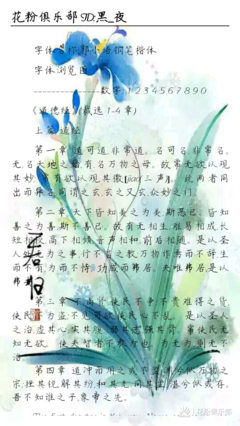 花粉俱乐部ID:黑_夜
字体浏览图
数字:1234567890
《道德经》(截选1-4章)
上篇 道经
第一章 道可道非常道。名可名非常名。
无名天地之始有名万物之母。故常无欲以观
其妙常有欲以观其徼(jiào三声)。此两者同
出而异名同谓之玄玄之又玄众妙之门。
第二章 天下皆知美之为美斯恶已。皆知
善之为善斯不善已。故有无相生难易相成长
短相 高下相 音声相和前后相随。是以圣
人处无为之事行不言之教万物作焉而不辞生
而不有为而不恃功成而弗居。夫唯弗居是以
不去。
第三章 不尚贤使民不争不贵难得之货
使民不为盗不见可欲使民心不乱。是以圣人
之治虚其心实其腹弱其志强其骨。常使民无
知无欲。使夫智者不敢为也。为无为则无不
治。
第四章 道冲而用之或不盈。渊兮似万物之
宗。挫其锐解其纷和其光同其尘。湛兮似或存。
吾不知谁之子象帝之先。
君归
花粉俱乐部